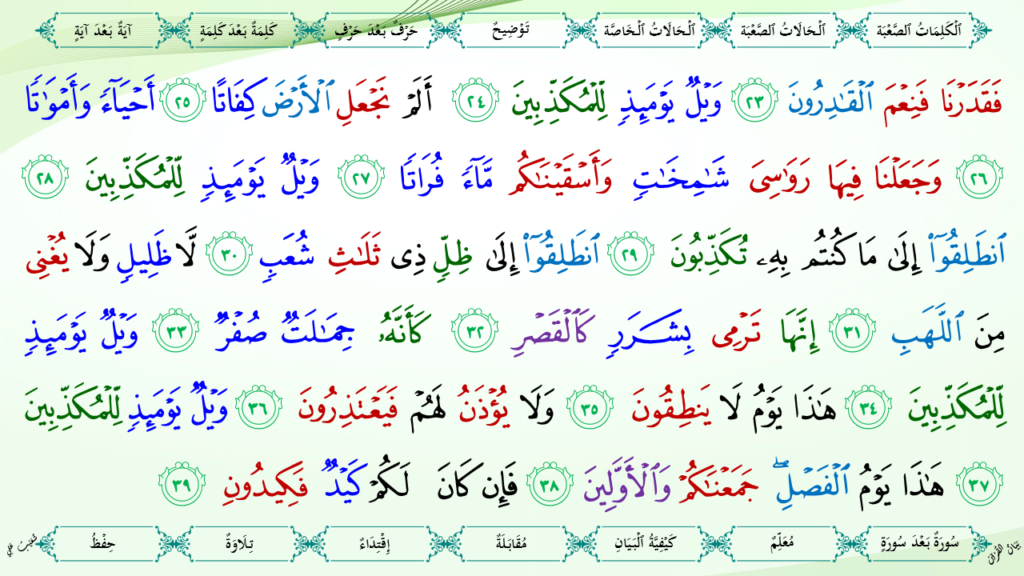 اَلْكَلِمَاتُ الصَّعْبَة اَلْحَالَاتُ الصَّعْبَة اَلْحَالَاتُ الْخَاصَّة تَوْضِيحٌ حَرْفٌ بَعْدَ حَرْفٍ كَلِمَةٌ بَعْدَ كَلِمَةٍ آيَةٌ بَعْدَ آيَةٍ
فَقَدَرْنَا فَنِعْمَ ٱلْقَـٰدِرُونَ ٢٣ وَيْلٌ يَوْمَئِذٍ لِّلْمُكَذِّبِينَ ٢٤ أَلَمْ نَجْعَلِ ٱلْأَرْضَ كِفَاتًا ٢٥ أَحْيَآءً وَأَمْوَٰتًا
٢٦ وَجَعَلْنَا فِيهَا رَوَٰسِىَ شَـٰمِخَـٰتٍ وَأَسْقَيْنَـٰكُم مَّآءً فُرَاتًا ٢٧ وَيْلٌ يَوْمَئِذٍ لِّلْمُكَذِّبِينَ ٢٨
ٱنطَلِقُوٓا۟ إِلَىٰ مَا كُنتُم بِهِۦ تُكَذِّبُونَ ٢٩ ٱنطَلِقُوٓا۟ إِلَىٰ ظِلٍّ ذِى ثَلَـٰثِ شُعَبٍ ٣٠ لَّا ظَلِيلٍ وَلَا يُغْنِى
مِنَ ٱللَّهَبِ ٣١ إِنَّهَا تَرْمِى بِشَرَرٍ كَٱلْقَصْرِ ٣٢ كَأَنَّهُۥ جِمَـٰلَتٌ صُفْرٌ ٣٣ وَيْلٌ يَوْمَئِذٍ
لِّلْمُكَذِّبِينَ ٣٤ هَـٰذَا يَوْمُ لَا يَنطِقُونَ ٣٥ وَلَا يُؤْذَنُ لَهُمْ فَيَعْتَذِرُونَ ٣٦ وَيْلٌ يَوْمَئِذٍ لِّلْمُكَذِّبِينَ
٣٧ هَـٰذَا يَوْمُ ٱلْفَصْلِ ۖ جَمَعْنَـٰكُمْ وَٱلْأَوَّلِينَ ٣٨ فَإِن كَانَ لَكُمْ كَيْدٌ فَكِيدُونِ ٣٩
سُورَةٌ بَعْدَ سُورَةٍ مُعَلِّمٌ كَيْفِيَّةُ الْبَيَانِ مُقَابَلَةٌ إِقْتِدَاءٌ تِلَاوَةٌ حِفْظٌ
بَيَانُ الْقُرْآن